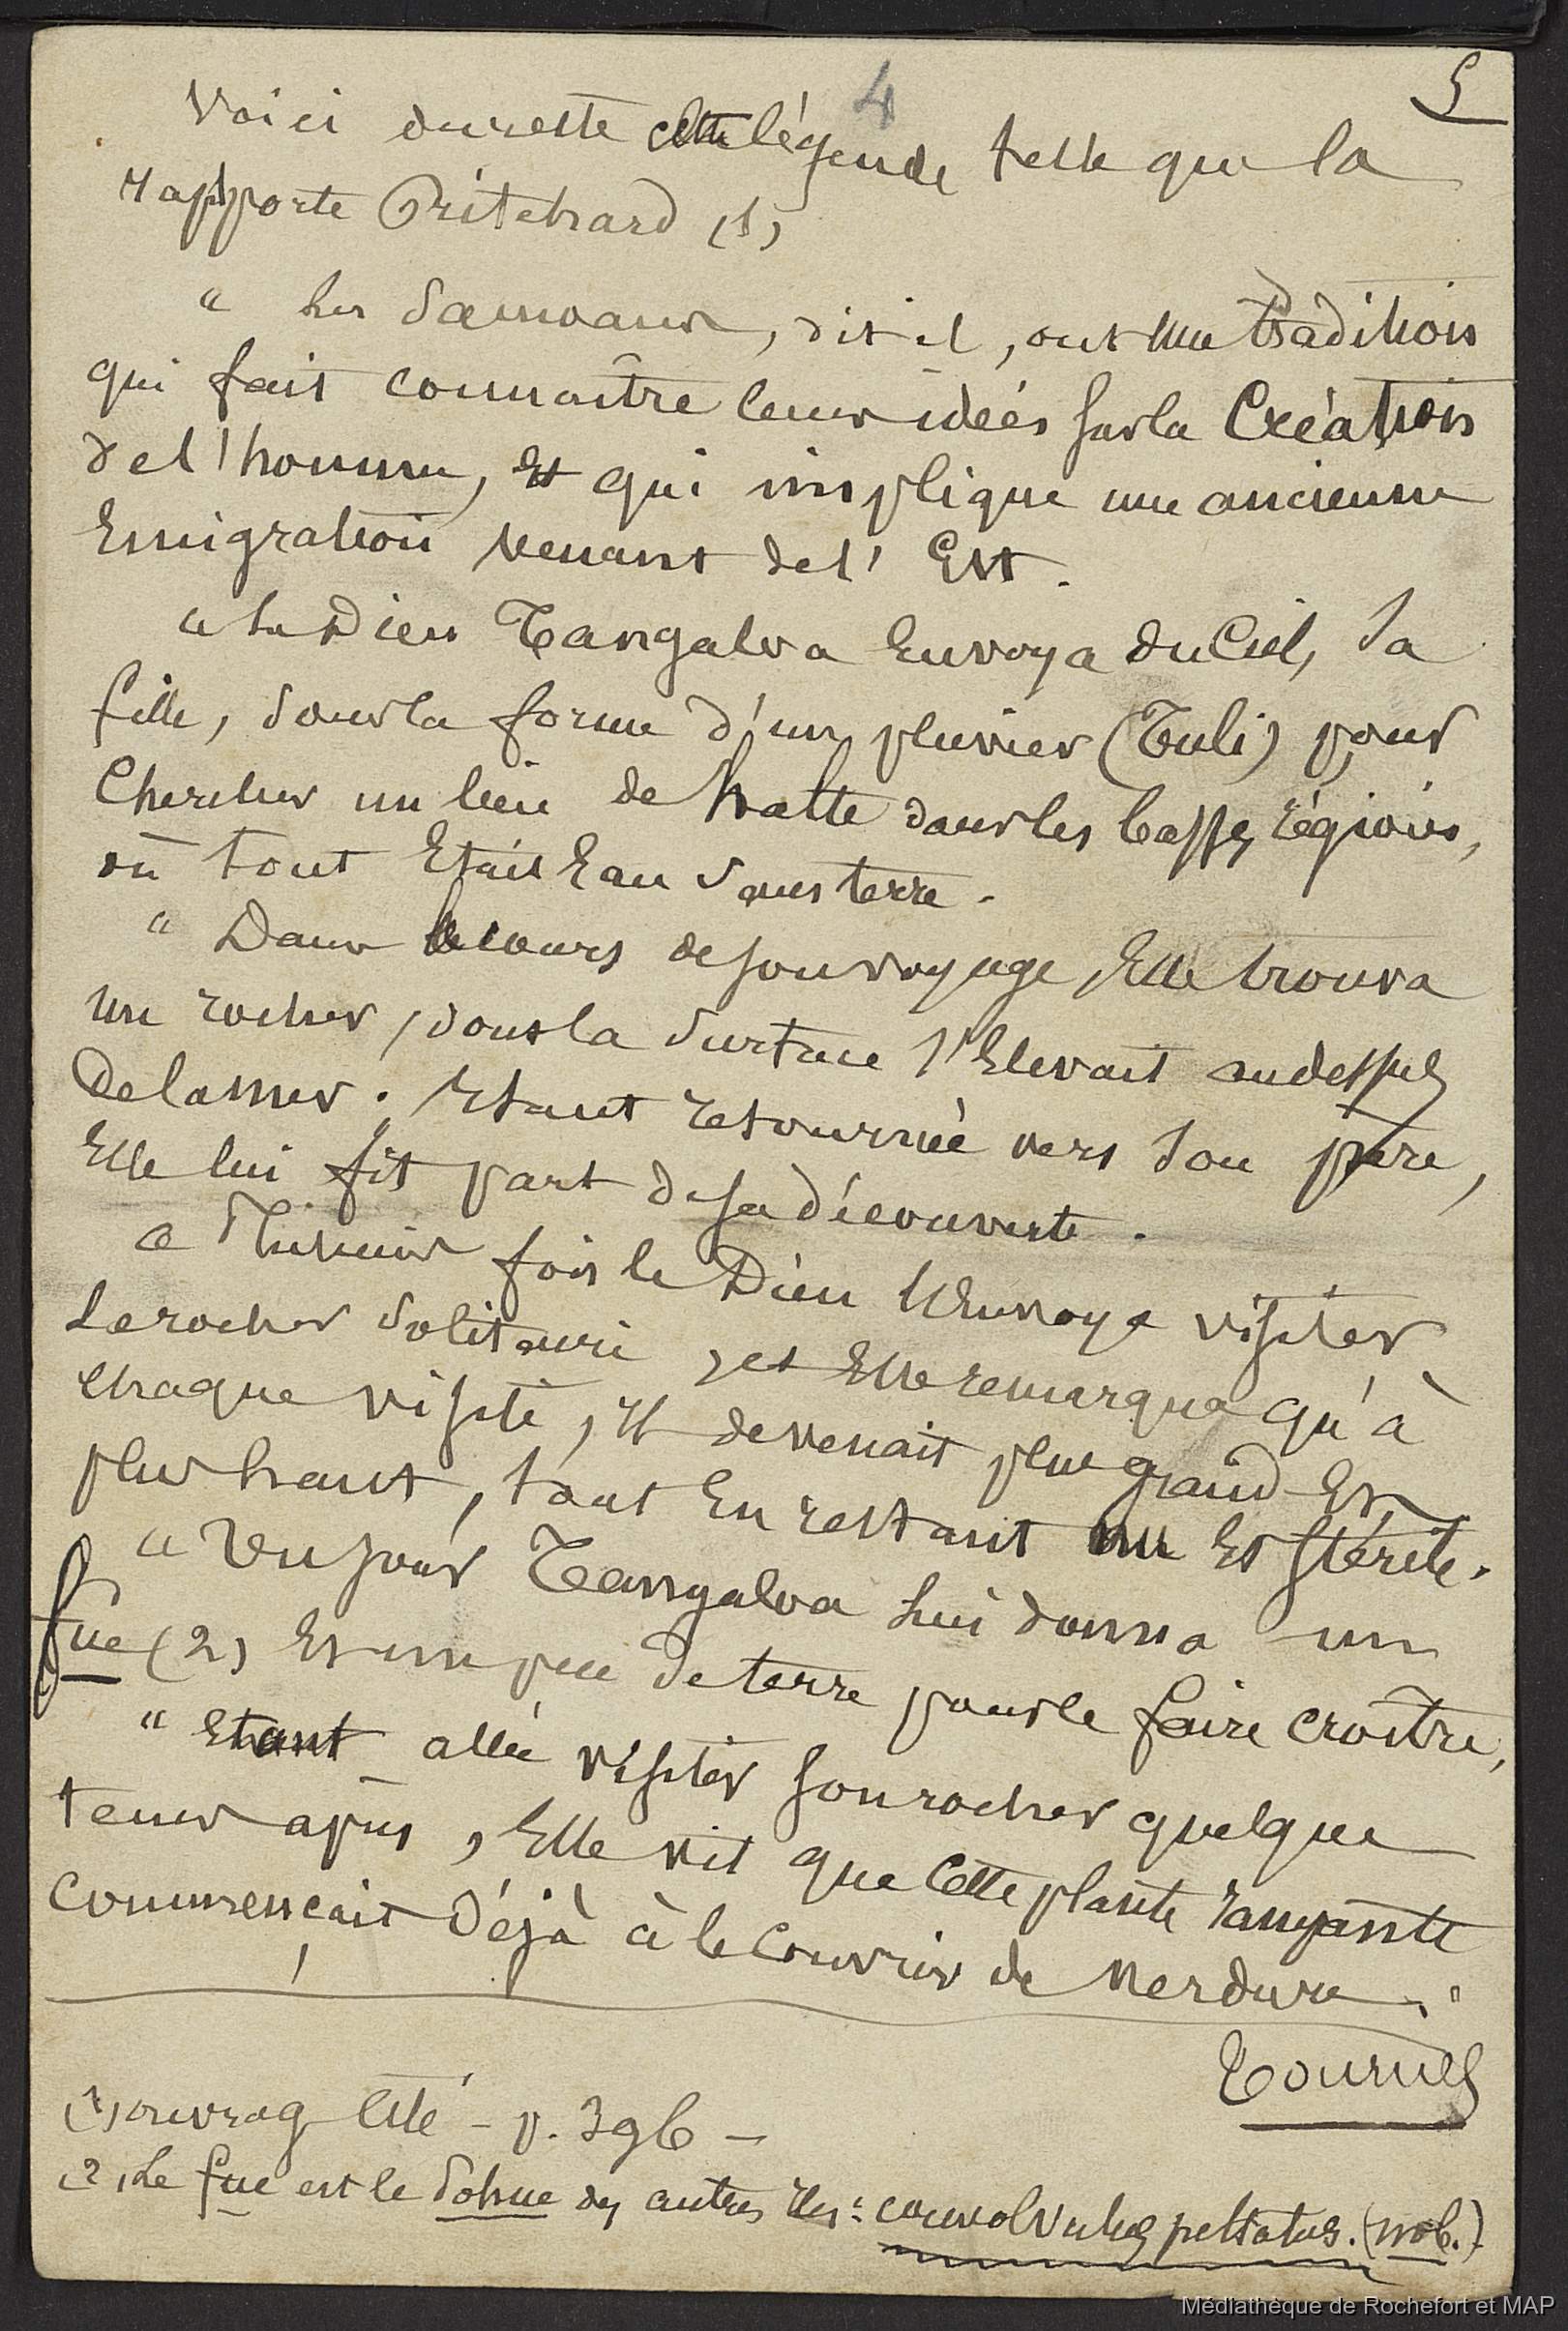 4
5
Voici du reste cette légende telle que la
rapporte Pritchard (1)
" Les Samoans, dit-il, ont une tradition
qui fait connaître leurs idées sur la Création
de l'homme, et qui implique une ancienne
Emigration venant de l'Est.
" Le Dieu Tangaloa Envoya du Ciel, Sa
fille, sous la forme d'un pluvier (Tuli) pour
Chercher un lieu de halte dans les basses régions,
où tout Etait Eau sans terre.
" Dans le cours de son voyage, Elle trouva
un rocher, dont la surface s'Elevait au dessus
de la mer. Etant retournée vers son père,
Elle lui fit part de sa découverte.
" Plusieurs fois le Dieu l'Envoya visiter
Le rocher solitaire, et Elle remarqua qu'à
chaque visite, il devenait plus grand Et
plus haut, tout En restant nu Et stérile.
" Un jour Tangaloa lui donna un
fue (2) Et un peu de terre pour le faire croître,
" Etant allée visiter son rocher quelque
tems après, Elle vit que Cette plante rampante
Commençait déjà à le Couvrir de Verdure. "
Tournez
(1) ouvrag Cité - p. 396 -
(2) Le fue est le Pohue des autres Iles: convolvulus peltatus. (nob.)
Médiathèque de Rochefort et MAP